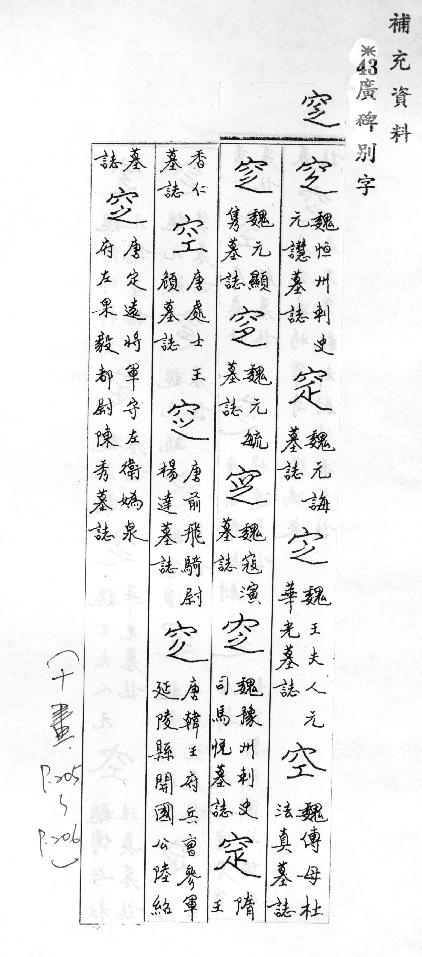 補充資料
※43廣碑別字
窆
窆 魏恒州刺史元譿墓誌 窆 魏元誨墓誌 窆 魏王夫人元華光墓誌 空 魏傅母杜法真墓誌
窆 魏元顯雋墓誌 窆 魏元毓墓誌 窆 魏寇演墓誌 窆 魏豫州刺史司馬悅墓誌 窆 隋王
香仁墓誌 空 唐處士王墓誌 窆 唐前飛騎尉楊達墓誌 窆 唐韓王府兵曹參軍延陵縣開國公陸紹
墓誌 窆 唐定遠將軍守左衛嬀泉府左果毅都尉陳秀墓誌
(十畫 P.205~P.206)